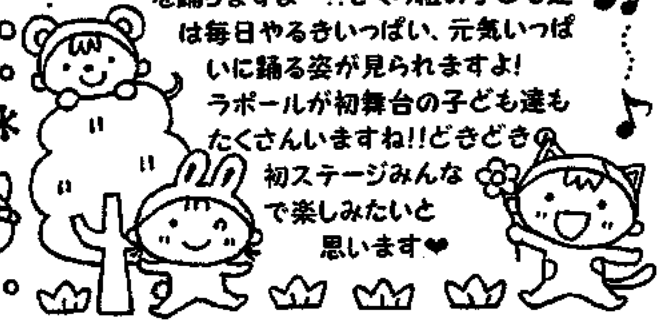 は毎日やるきいっぱい、元気いっぱ
いに踊る姿が見られますよ!
ラポールが初舞台の子ども達も
たくさんいますね!!どきどき
初ステージみんな
で楽しみたいと
思います❤